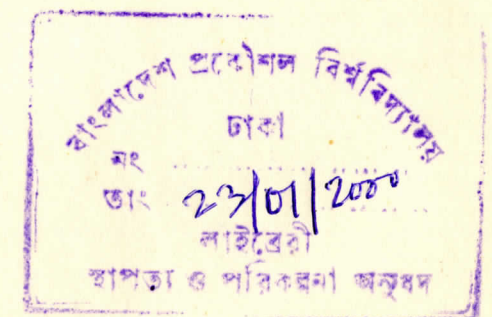 বাংলাদেশ প্রকৌশল বিশ্ববিদ্যালয়
ঢাকা
নং ..................
তাং 23/01/2000
লাইব্রেরী
স্থাপত্য ও পরিকল্পনা অনুষদ